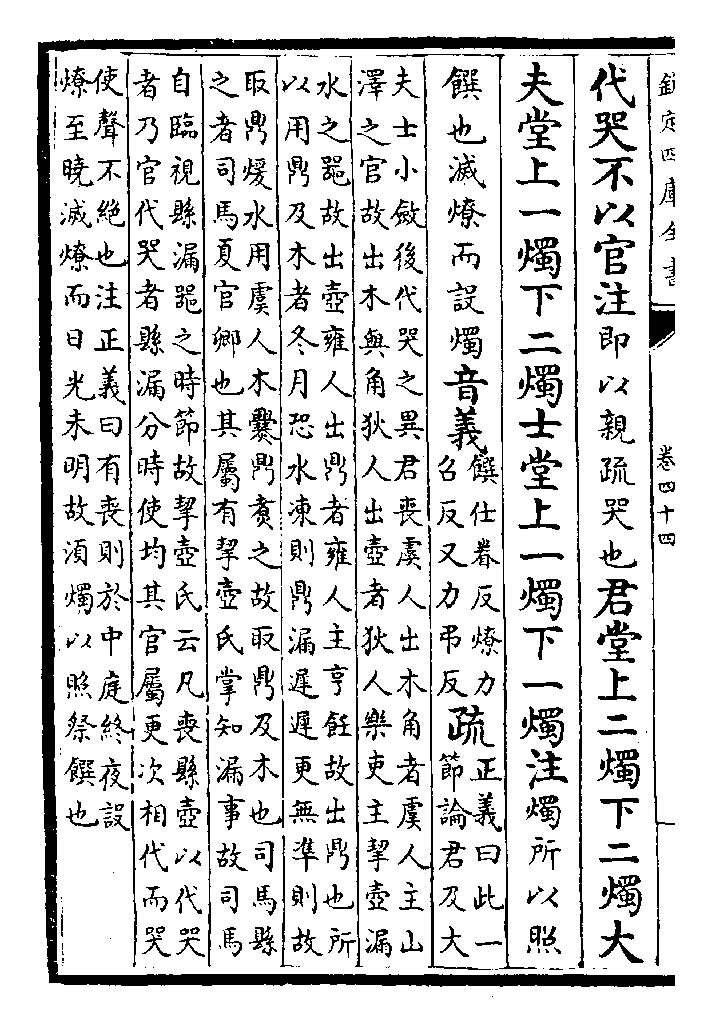 欽定四庫全書
卷四十四
代哭不以官注即以親疏哭也君堂上二燭下二燭大
夫堂上一燭下二燭士堂上一燭下一燭注燭所以照
饌也滅燎而設燭音義饌仕眷反燎力
召反又力弔反疏正義曰此一
節論君及大
夫士小斂後代哭之異君喪虞人出木角者虞人主山
澤之官故出木與角狄人出壺者狄人樂吏主挈壺漏
水之器故出壺雍人出鼎者雍人主亨飪故出鼎也所
以用鼎及木者冬月恐水凍則鼎漏遲遲更無凖則故
取鼎煖水用虞人木爨鼎煑之故取鼎及木也司馬縣
之者司馬夏官卿也其屬有挈壺氏掌知漏事故司馬
自臨視縣漏器之時節故挈壺氏云凡喪縣壺以代哭
者乃官代哭者縣漏分時使均其官屬更次相代而哭
使聲不絶也注正義曰有喪則於中庭終夜設
燎至曉滅燎而日光未明故須燭以照祭饌也